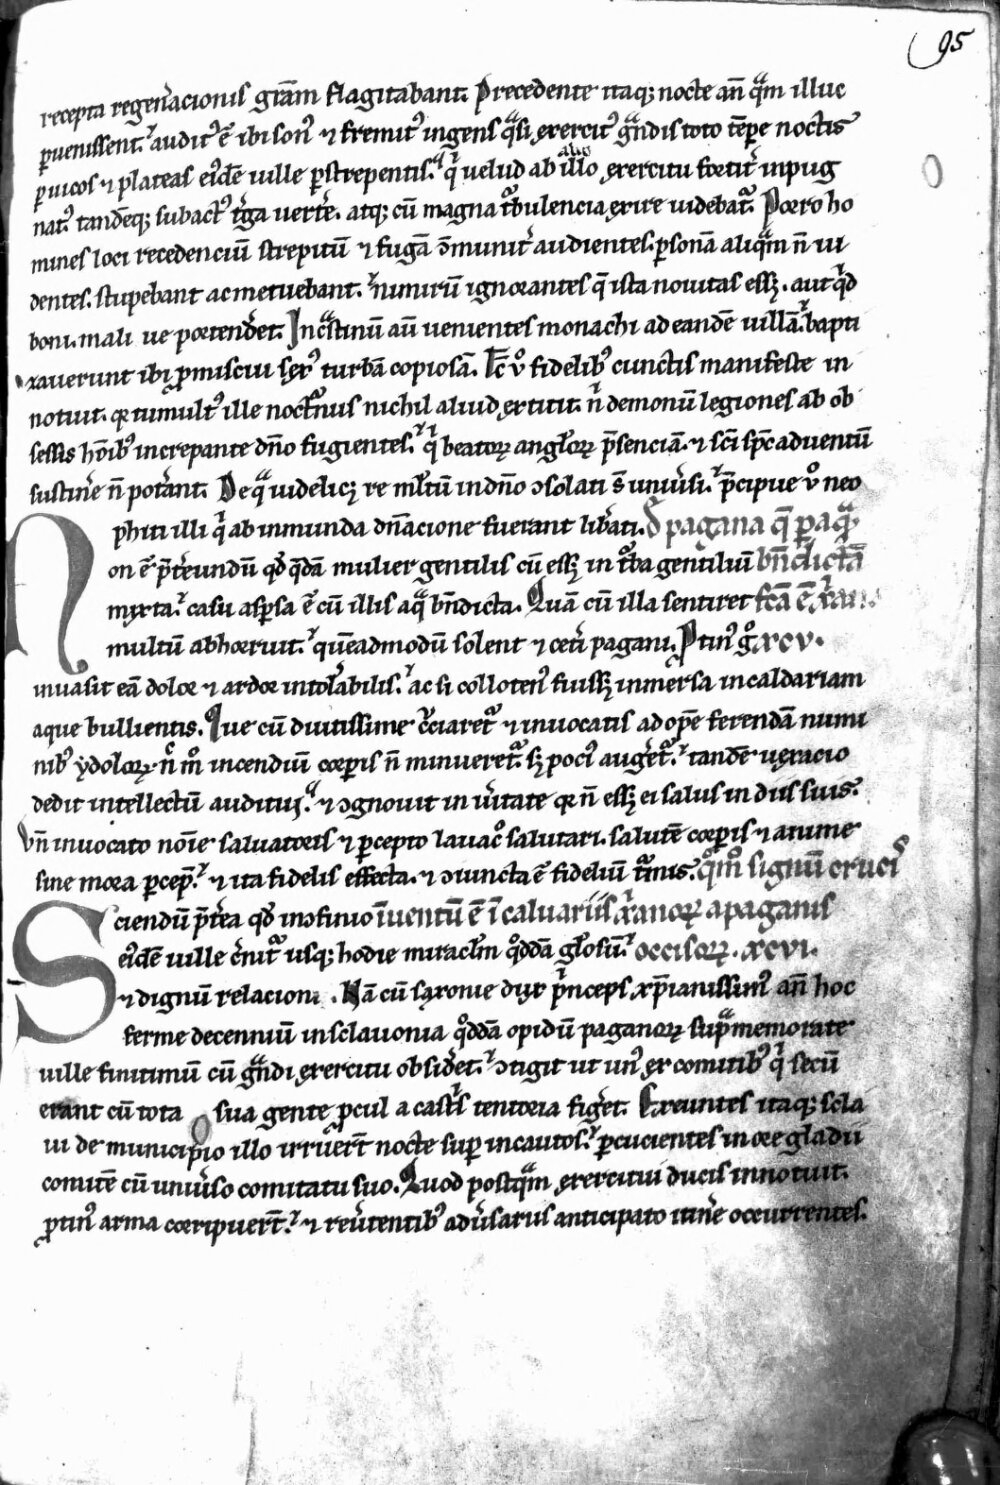 95
recepta regen̄acionis gr̄am flagitabant. Precedente itaq; nocte an̄ qᵃm illuc
ꝑuenissent. audit᷒ ē ibi son᷒ ⁊ fremit᷒ ingens qᵃsi exercit᷒ gᵃndis toto tēpe noctis
ꝑ uicos ⁊ plateas ei᷒dē uille ꝑstrepentis. qⁱ uelud ab illo alio exercitu fortit̄ inpug
nat᷒. tandēq; subact᷒ t̄ga uert̄e. atq; cū magna tᵒbulencia exire uidebat᷑. Porro ho
mines loci recedenciū strepitū ⁊ fugā ↄmunit̄ audientes. ꝑsonā aliqᵃm n̄ ui
dentes. stupebant ac metuebant. nimirū ignorantes q̄ ista nouitas essꝫ. aut qⁱd
boni. mali ue portend̄et. In cᵃstinū aū uenientes monachi ad eandē uillā. bapti
xauerunt ibi ꝓmiscui sex᷒ turbā copiosā. Hͨ vᵒ fidelib᷒ cunctis manifeste in
notuit. qr tumult᷒ ille noct᷒nus nichil aliud extitit. nⁱ demonū legiones ab ob
sessis hōib᷒ increpante dn̄o fugientes. qⁱ beatoꝝ angl̄oꝝ p̄senciā. ⁊ sc̄i sp̄c aduentū
sustin̄e n̄ pot̄ant. De qᵃ uidelicꝫ re ml̄tū in dn̄o ↄsolati s̄ uniu̓si. p̄cipue vᵒ neo
phiti illi qⁱ ab inmunda dn̄acione fuerant lib̄ati. D̄ pagana q̄ ꝑ aqᵃ
Non ē p̄t̄eundū qd̓ qᵃdā mulier gentilis cū essꝫ in tᵒba gentiliū bn̄dictā
mixta. casu asꝑsa ē cū illis aqᵃ bn̄dicta. Quā cū illa sentiret fc̄a ē x̄ana.
multū abhorruit. quēadmodū solent ⁊ cet̄i pagani. Ptin᷒ gᵒ xcv.
inuasit eā dolor ⁊ ardor intol̄abilis. ac si colloten᷒ fuissꝫ inmersa in caldariam
aque bullientis. Que cū diutissime c̄ciaret᷑ ⁊ inuocatis ad opē ferendā numi
nib᷒ ydoloꝝ n̄ mᵒ incendiū corporis n̄ minueret᷑. sꝫ poci᷒ auḡet᷑. tandē uexacio
dedit intellectū auditui. ⁊ ↄgnouit in ū̓itate qr n̄ essꝫ ei salus in diis suis.
Vn̄ inuocato noīe saluatoris ⁊ percepto lauacᵒ salutari. salutē corꝑis ⁊ anime
sine mora percep̄. ⁊ ita fidelis effecta. ⁊ ↄiuncta ē fideliū tᵃmis. qᵒmᵒ signū cruci᷒
Sciendū p̄t̄ea qd̓ in ↄfinio īuentū ē ī caluariis x̄anoꝝ a paganis
ei᷒dē uille c̄nit᷑ usq; hodie miracl̄m qᵒddā gl̄osū. occisoꝝ. xcvi.
⁊ dignū relacioni. Nā cū saxonie dux pⁱnceps xp̄ianissim᷒ an̄ hoc
ferme decenniū in sclauonia qᵒddā opidū paganoꝝ supᵃmemorate
uille finitimū cū gᵃndi exercitu obsid̄et. ↄtigit ut un᷒ ex comitib᷒ qⁱ secū
erant cū tota sua gente ꝓcul a castⁱs tentoria fiḡet. Exeuntes itaq; scla
ui de municipio illo irrūert̄ nocte suꝑ incautos. percucientes in ore gladii
comitē cū uniu̓so comitatu suo. Quod postqᵃm exercitui ducis innotuit.
ꝓtin᷒ arma corripuert̄. ⁊ reu̓tentib᷒ adū̓sariis anticipato itin̄e occurrentes.